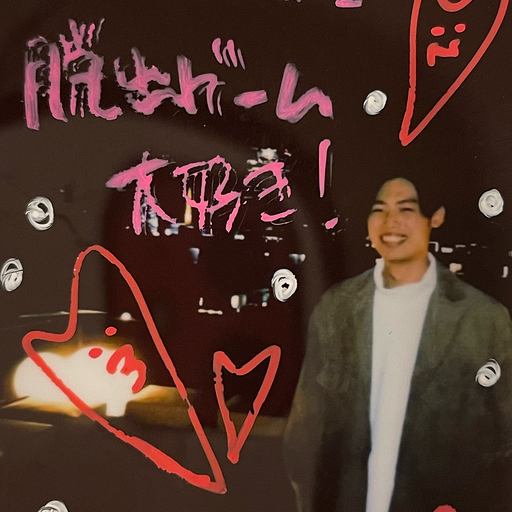 脱出ゲーム
大好き!